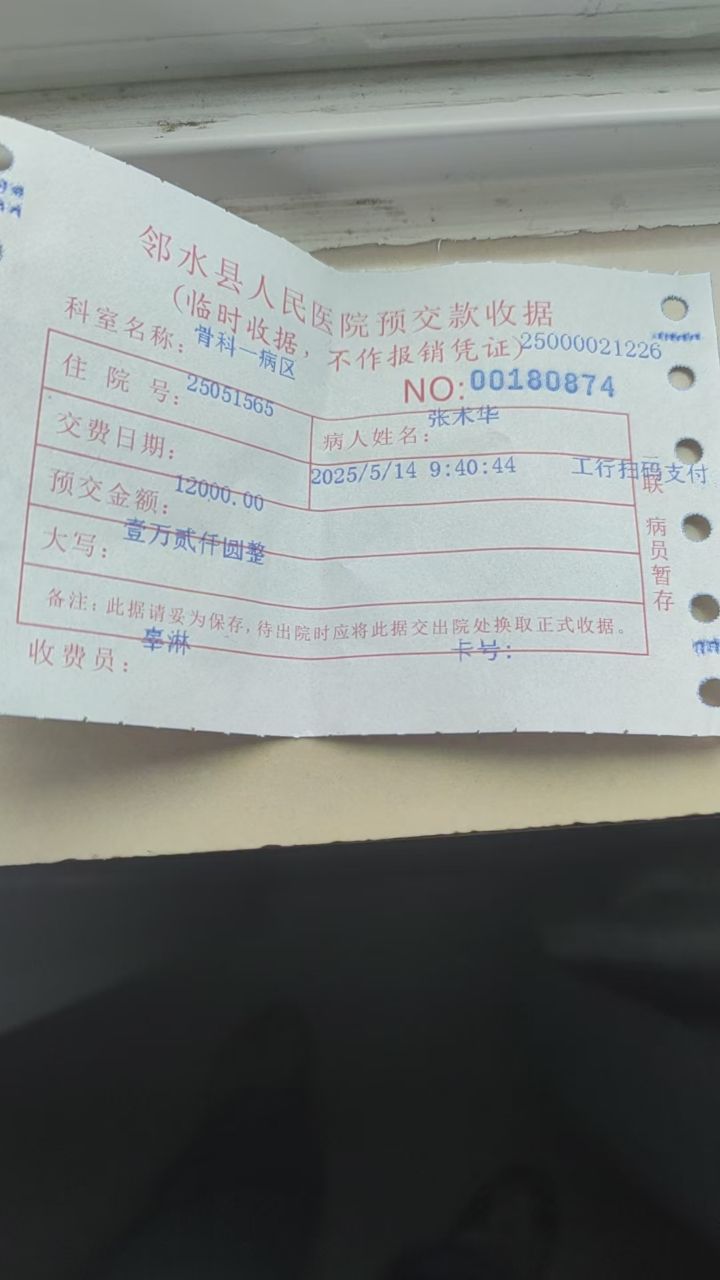 邻水县人民医院预交款收据
(临时收据，不作报销凭证)
25000021226
科室名称：骨科一病区
NO:00180874
住院号：25051565
病人姓名：张术华
交费日期：2025/5/14 9:40:44 工行扫码支付
预交金额：12000.00
大写：壹万贰仟圆整
备注：此据请妥为保存，待出院时应将此据交出院处换取正式收据。
收费员：辜淋
卡号：
联 病员暂存